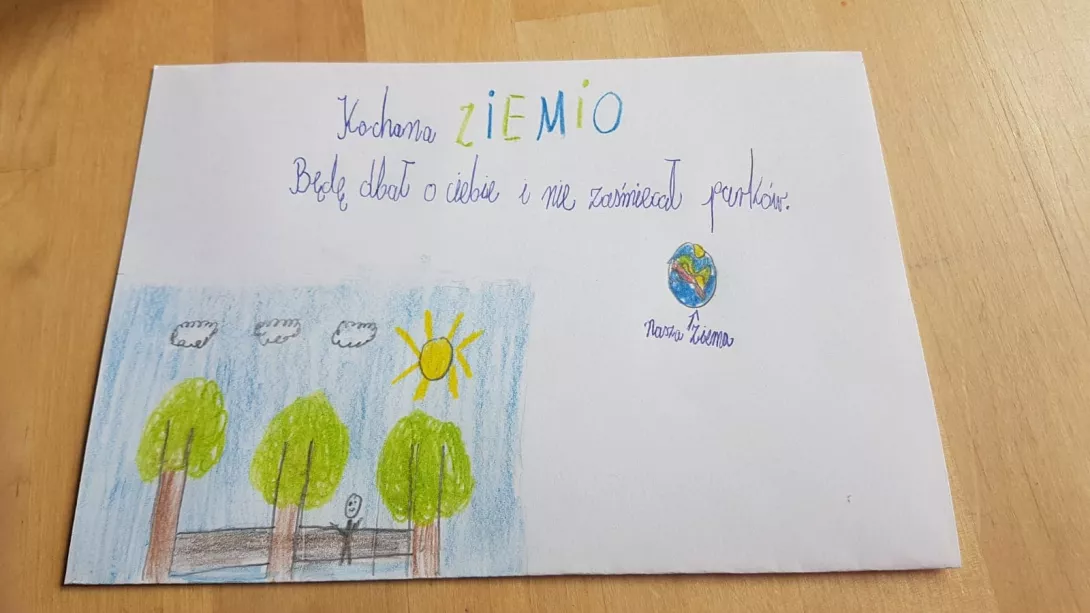 Kochana ZiEMiO
Będę dbał o ciebie i nie zaśmiecał parków.
Nasza Ziemia